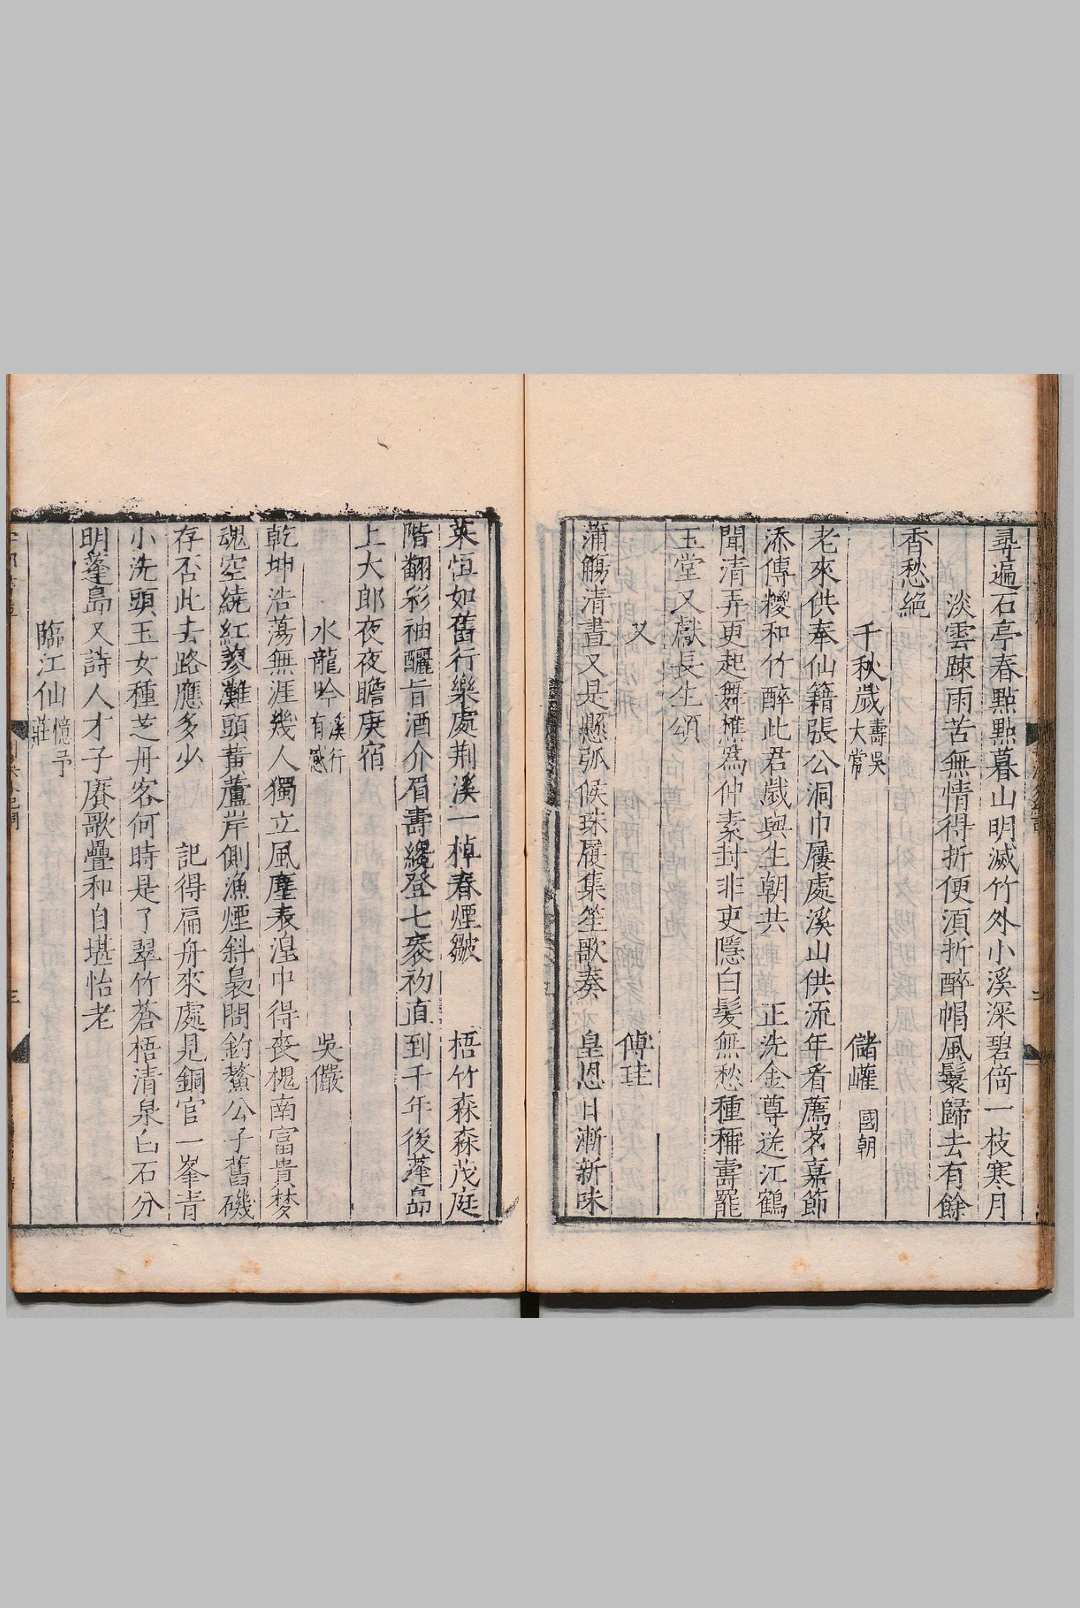 尋遍石亭春點點暮山明滅竹外小溪深碧倚一枝寒月
淡雲疎雨苦無情得折便湏折醉帽風鬟歸去有餘
香愁絕
千秋歲 壽吳大常 儲巏 國朝
老來供奉仙籍張公洞巾屨處溪山供流年看薦茗嘉節
添傳糉和竹醉此君歲與生朝共 正洗金尊送江鶴
聞清弄更起舞樵為仲素封非吏隱白髮無愁種稱壽罷
玉堂又獻長生頌
又 傅珪
蒲觴清晝又是懸弧候珠履集笙歌奏 皇恩日漸新味
萊恒如舊行樂處荆溪一棹春煙皺 梧竹森森茂庭
階翻彩袖釃旨酒介眉壽纔登七袠初直到千年後蓬島
上大郎夜夜瞻庚宿
水龍吟 溪行有感 吳儼
乾坤浩蕩無涯幾人獨立風塵表湟中得喪槐南富貴梦
魂空繞紅蓼灘頭黃蘆岸側漁煙斜裊問釣鰲公子舊磯
存否此去路應多少 記得扁舟來處見銅官一峯青
小洗頭玉女種芝丹客何時是了翠竹蒼梧清泉白石分
明蓬島又詩人才子賡歌疊和自堪怡老
臨江仙 憶予莊
三